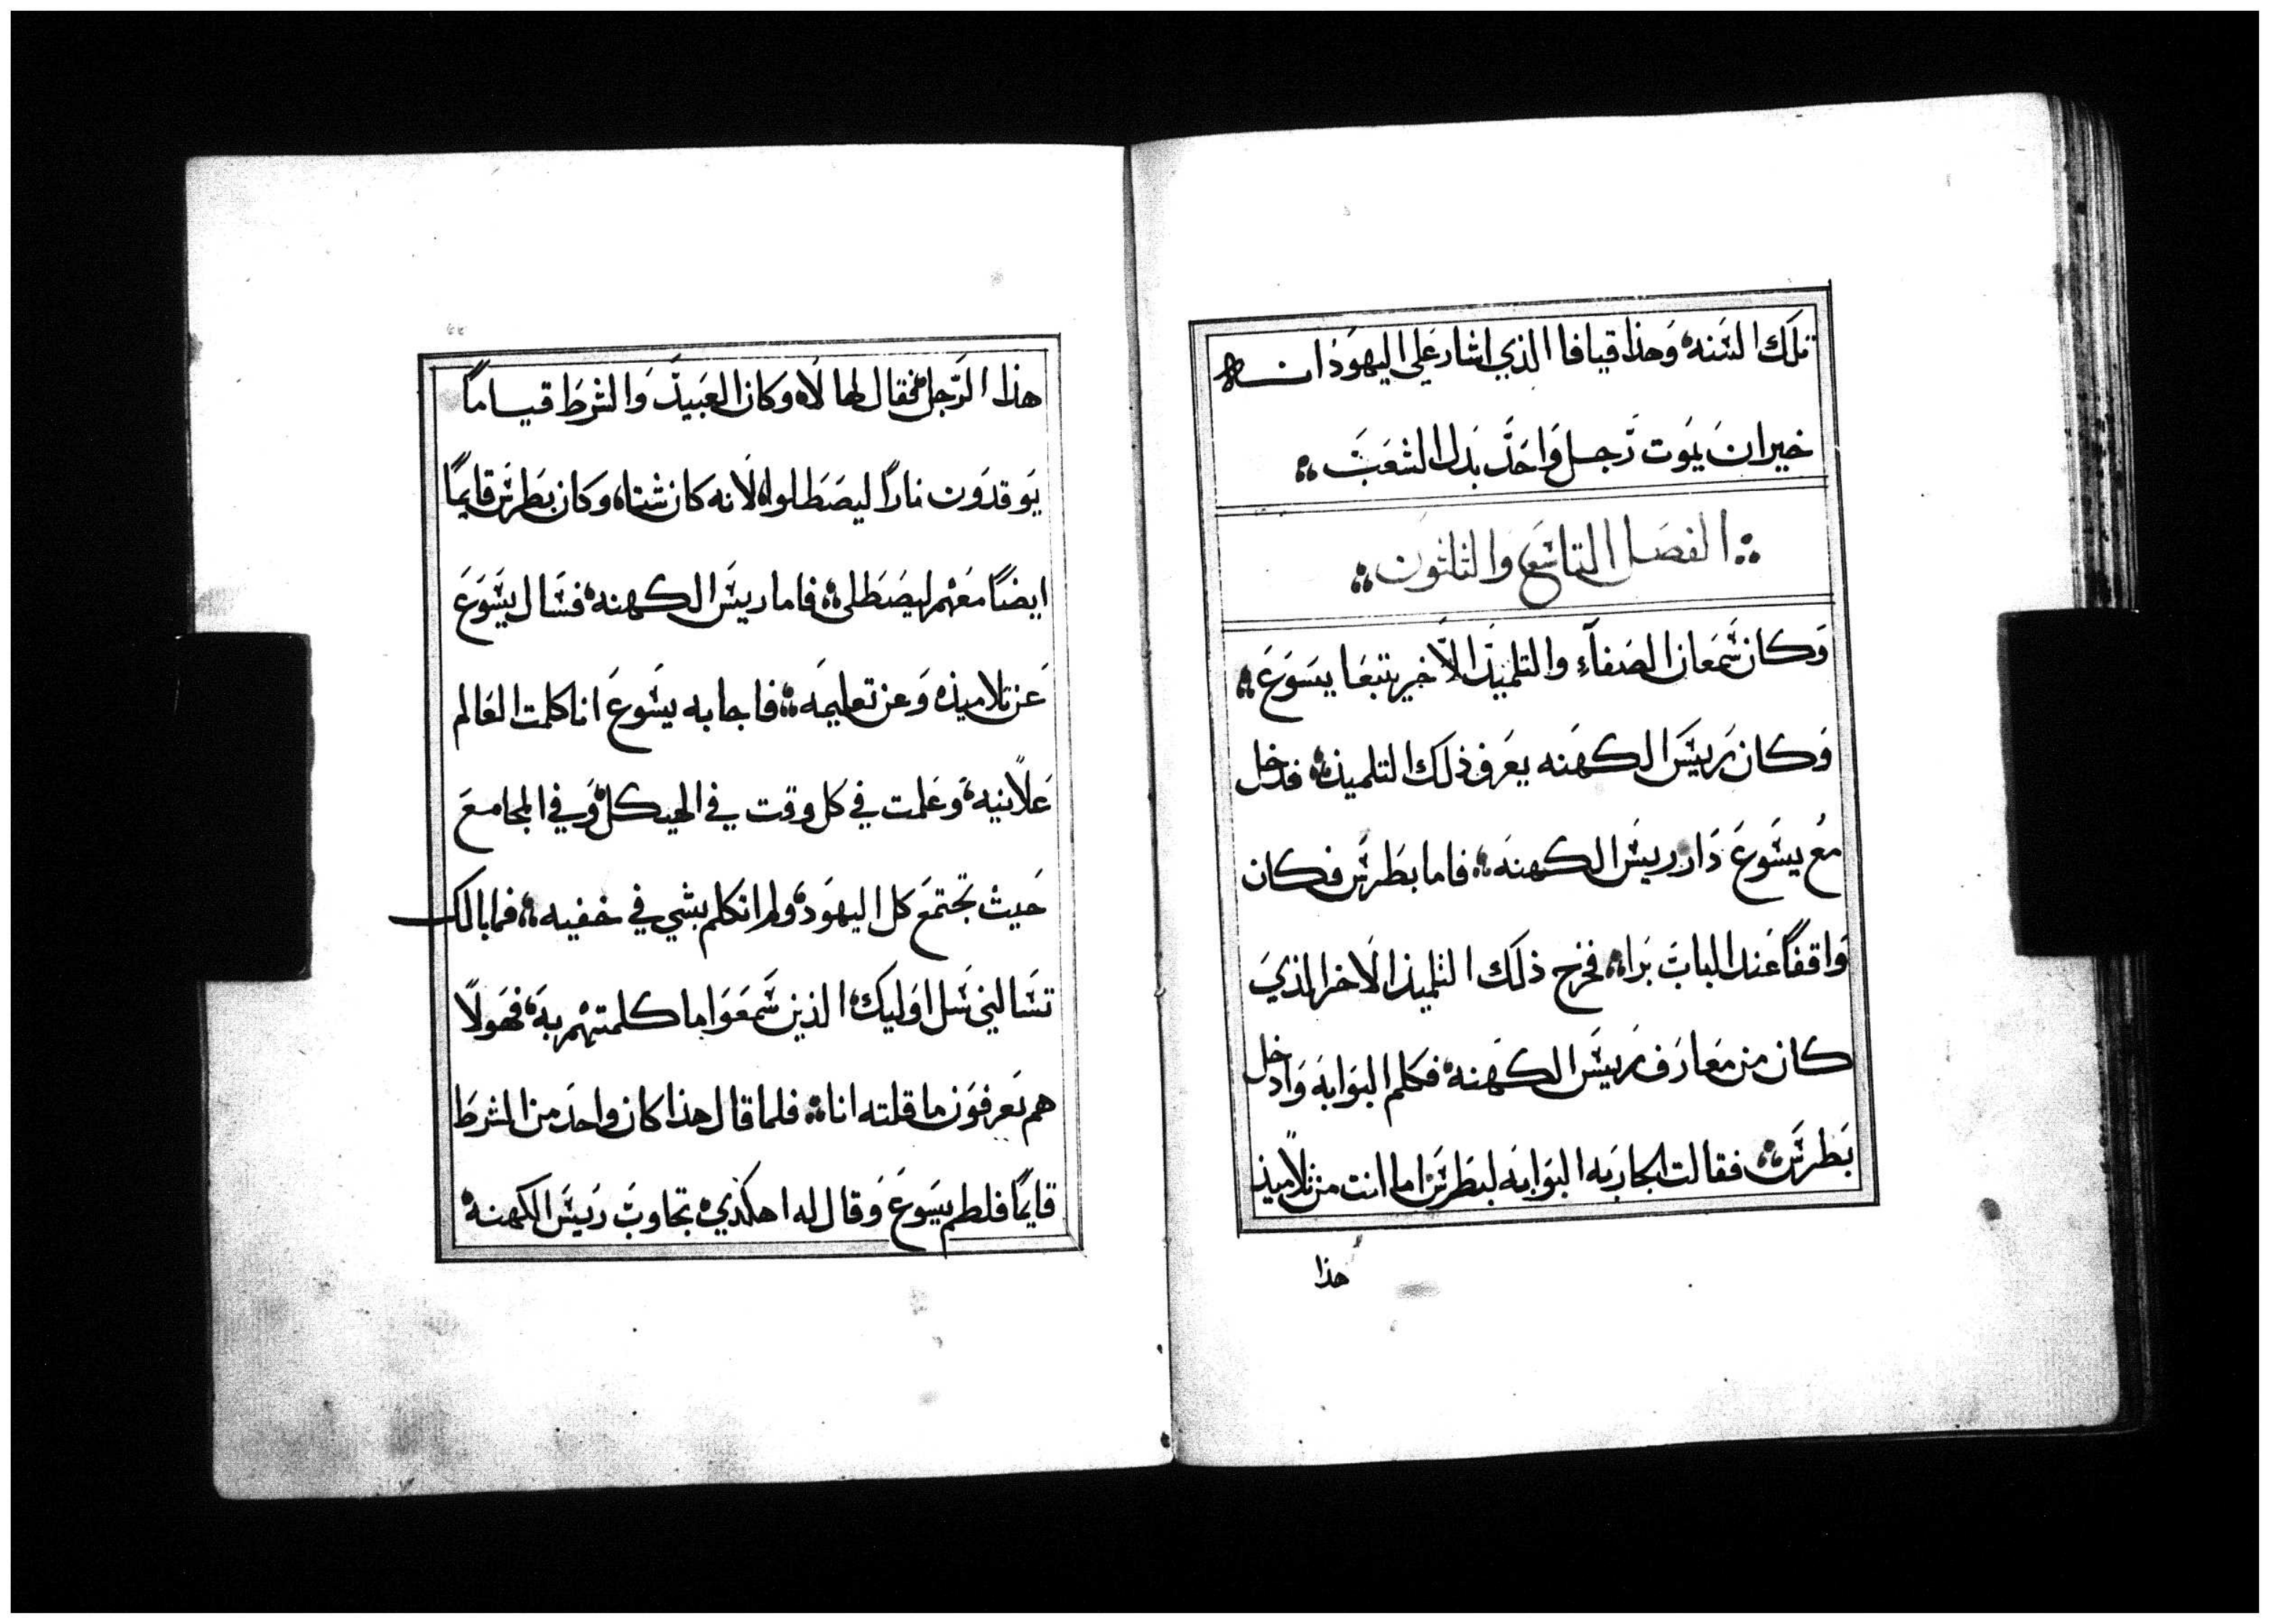 تلك السنه وهذا قيافا الذي اشار علي اليهود انه
خير ان يموت رجل واحد بدل الشعب
الفصل التاسع والتلتون
وكان شمعان الصفآء والتلميذ الاخير يتبعا يسوع
وكان رييس الكهنه يعرف ذلك التلميذ فدخل
مع يسوع دار رييس الكهنه فاما بطرس فكان
واقفًا عند الباب برا فخرج ذلك التلميذ الاخر الذي
كان من معارف رييس الكهنه فكلم البوابه وادخل
بطرس فقالت الجاريه البوابه لبطرس اما انت من تلاميذ
هذا
هذا الرجل فقال لها لا وكان العبيد والشرط قيامًا
يوقدون نارًا ليصطلوا لانه كان شتا وكان بطرس قايمًا
ايضًا معهم ليصطلي فاما رييس الكهنه فسال يسوع
عن تلاميذه وعن تعليمه فاجابه يسوع انا كلمت العالم
علانيه وعلمت في كل وقت في الهيكل وفي المجامع
حيث تجتمع كل اليهود ولم اتكلم بشي في خفيه فما بالك
تسالني سل اوليك الذين سمعوا ما كلمتهم به فهولا
هم يعرفون ما قلته انا فلما قال هذا كان واحد من الشرط
قايمًا فلطم يسوع وقال له اهكذي تجاوب رييس الكهنه